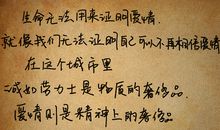 生命无法用来证明爱情
就像我们无法证明自己可以不再相信爱情
在这个城市里
诚如劳力士是物质的奢侈品
爱情则是精神上的奢侈品